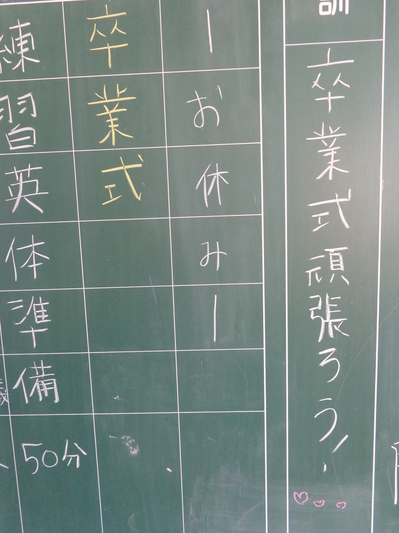 訓
卒業式頑張ろう!
ーお休みー
卒業式
練習英体準備
50分